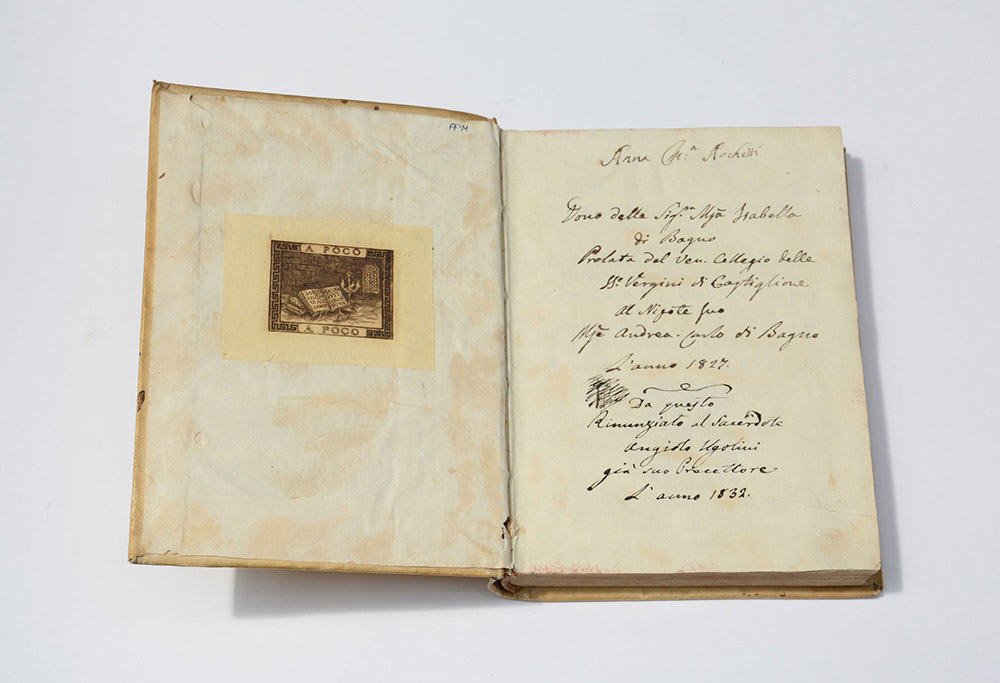 APM
A POCO
A POCO
Anna M.a Rochetti
Dono della Sig.ra Mja Isabella
di Bagno
Prelata del Ven. Collegio delle
SS.e Vergini di Castiglione
al Nipote suo
Mje Andrea-Carlo di Bagno
L'anno 1827.
Da questo
Rinunziato al Sacerdote
Angiolo Ugolini
già suo Precettore
L'anno 1832.